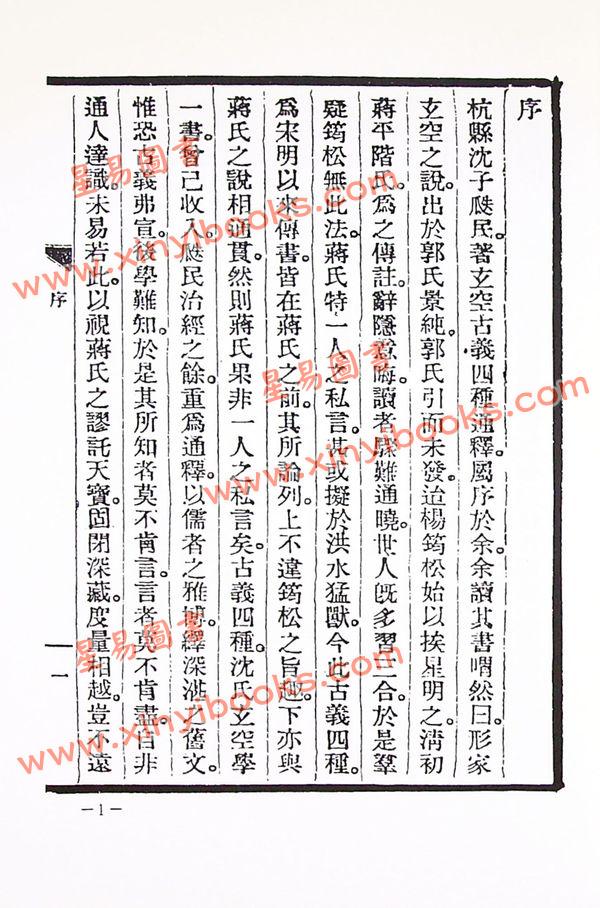 序
杭縣沈子瓞民。著玄空古義四種通釋。屬序於余。余讀其書。喟然曰。形家
玄空之說。出於郭氏景純。郭氏引而未發。迨楊筠松始以挨星明之。淸初
蔣平階氏。爲之傳註。辭隱意晦。讀者驟難通曉。世人旣多習三合。於是羣
疑筠松無此法。蔣氏特一人之私言。甚或擬於洪水猛獸。今此古義四種。
爲宋明以來傳書。皆在蔣氏之前。其所論列。上不違筠松之旨趣。下亦與
蔣氏之說相通貫。然則蔣氏果非一人之私言矣。古義四種。沈氏玄空學
一書。曾已收入。瓞民治經之餘。重爲通釋。以儒者之雅博。繹深澁之舊文。
惟恐古義弗宣。後學難知。於是其所知者莫不肯言。言者莫不肯盡。自非
通人達識。未易若此。以視蔣氏之謬託天寶。固閉深藏。度量相越。豈不遠
序
一
—1—
星易圖書
www.xinyibooks.com
星易圖書
www.xinyibooks.com
星易圖書
www.xinyibooks.com